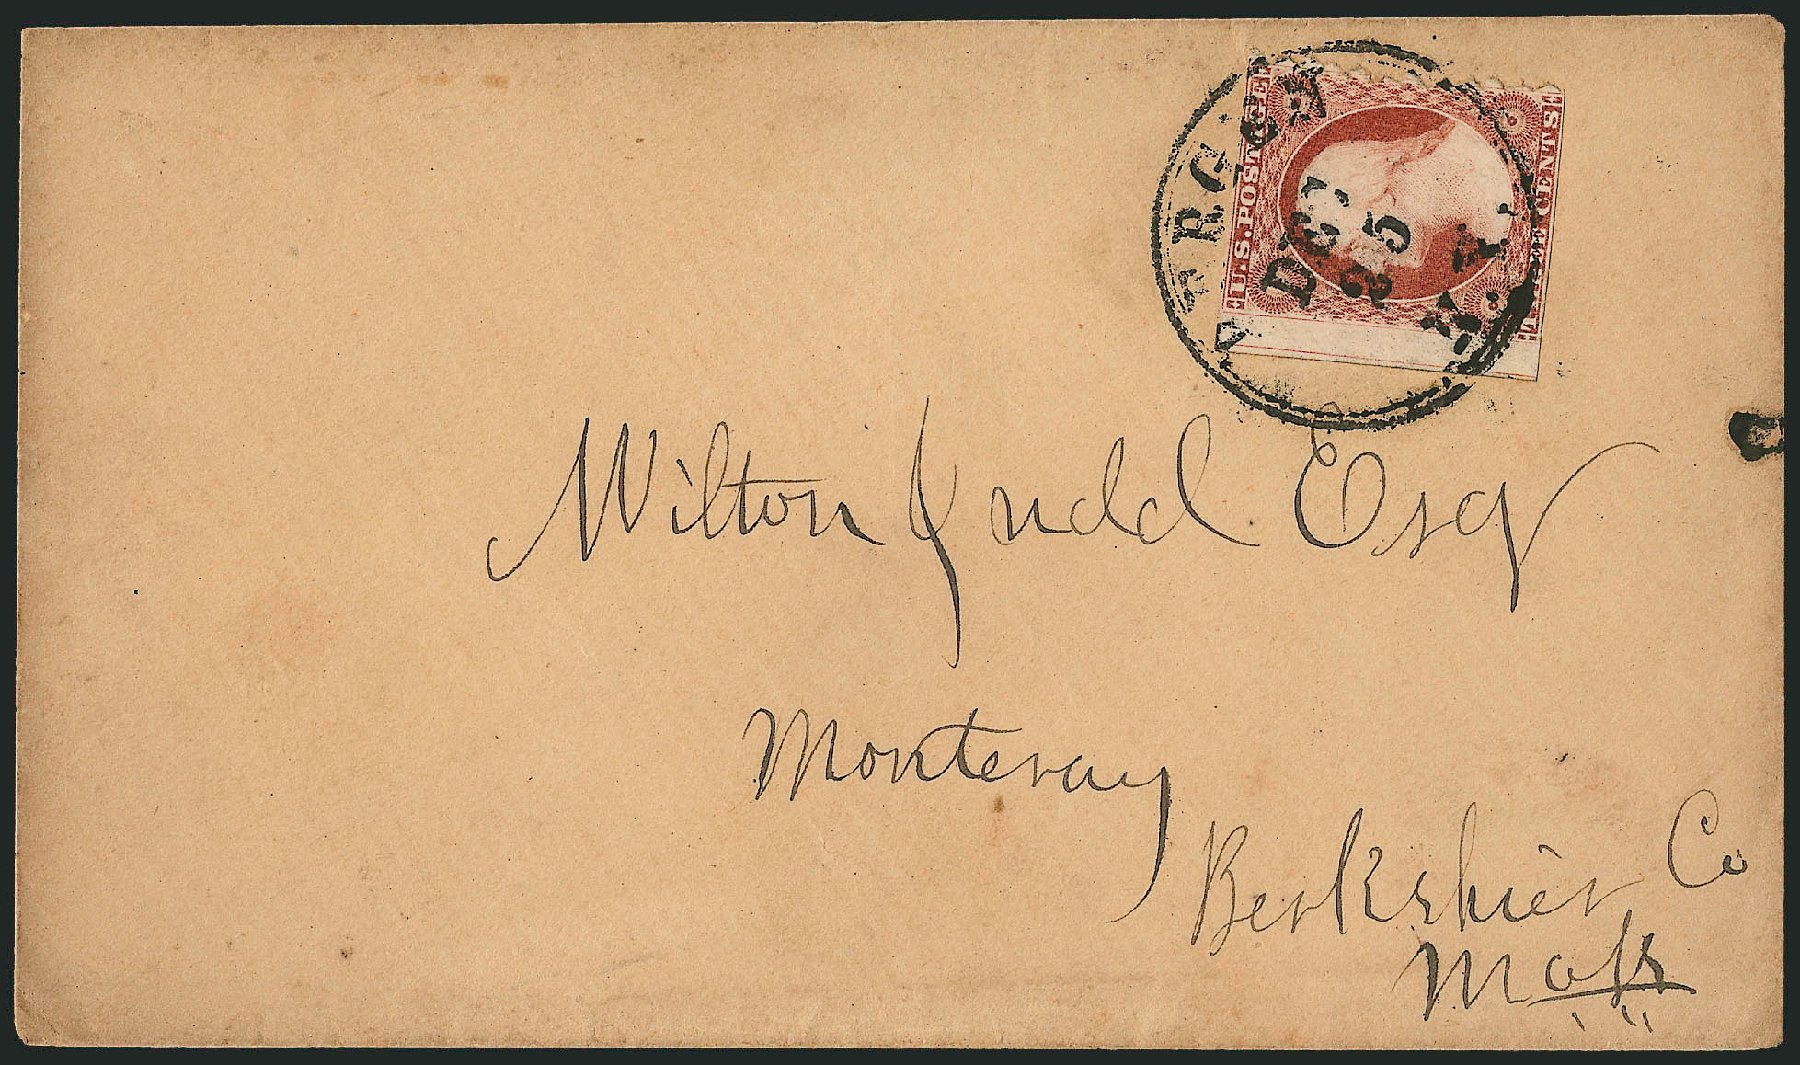 U.S. POSTAGE
THREE CENTS
DEC
25
N.Y.
Wilton Judd Esq
Monteray
Berkshier Co
Mass